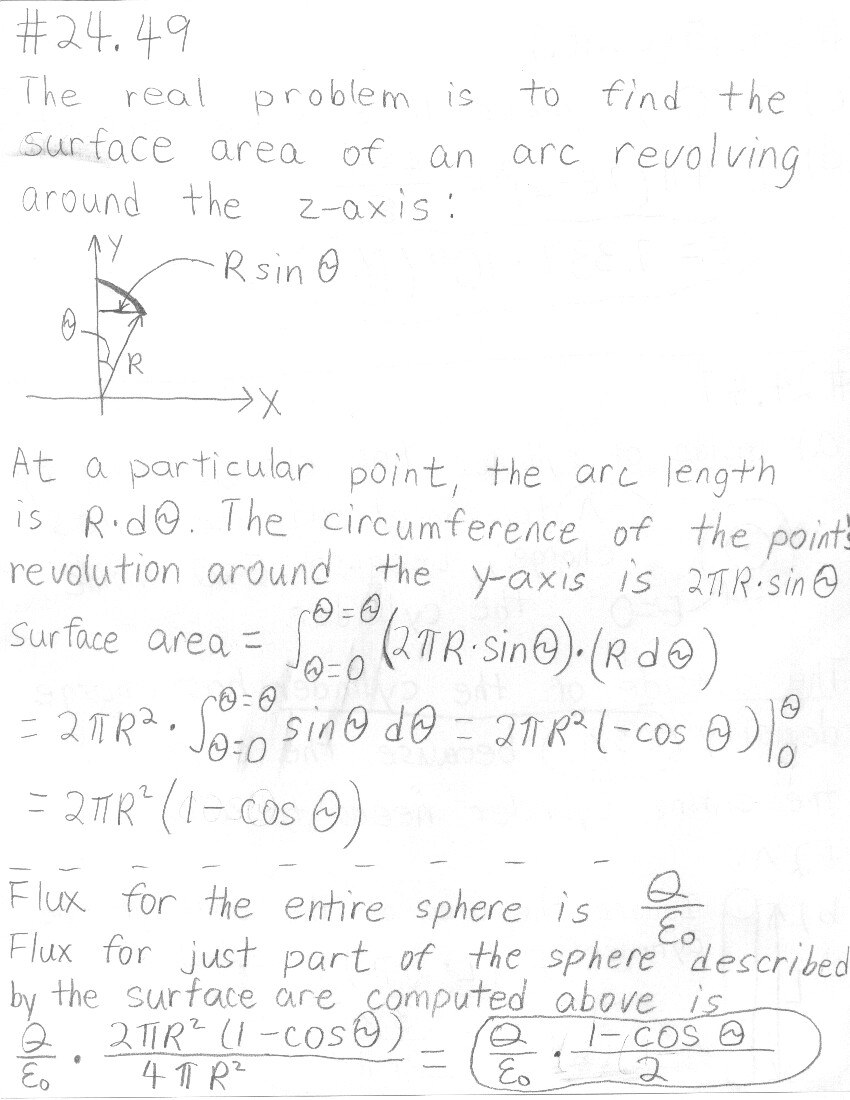 #24.49
The real problem is to find the
surface area of an arc revolving
around the z-axis:
Y
R sin θ
θ
R
X
At a particular point, the arc length
is R·dθ. The circumference of the point's
revolution around the y-axis is 2πR·sinθ
surface area = ∫_{θ=0}^{θ=θ} (2πR·sinθ)·(R dθ)
= 2πR²·∫_{θ=0}^{θ=θ} sinθ dθ = 2πR²(-cos θ)|_0^θ
= 2πR²(1-cos θ)
Flux for the entire sphere is Q/ε₀
Flux for just part of the sphere described
by the surface are computed above is
Q/ε₀ · 2πR²(1-cosθ)/4πR² = Q/ε₀ · 1-cos θ/2